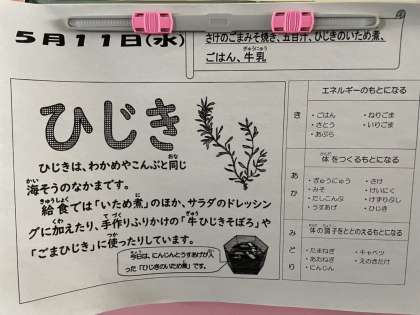 5月11日(水)
さけのごまみそ焼き、五目汁、ひじきのいため煮、
ごはん、牛乳
ひじき
ひじきは、わかめやこんぶと同じ
海そうのなかまです。
給食では「いため煮」のほか、サラダのドレッシン
グに加えたり、手作りふりかけの「牛ひじきそぼろ」や
「ごまひじき」に使ったりしています。
今日は、にんじんとうすあげが入
った「ひじきのいため煮」です。
エネルギーのもとになる
き
・ごはん ・ねりごま
・さとう ・いりごま
・あぶら
体をつくるもとになる
あか
・ぎゅうにゅう ・さけ
・みそ ・けいにく
・だしこんぶ ・けずりぶし
・うすあげ ・ひじき
体の調子をととのえるもとになる
みどり
・たまねぎ ・キャベツ
・あおねぎ ・えのきだけ
・にんじん